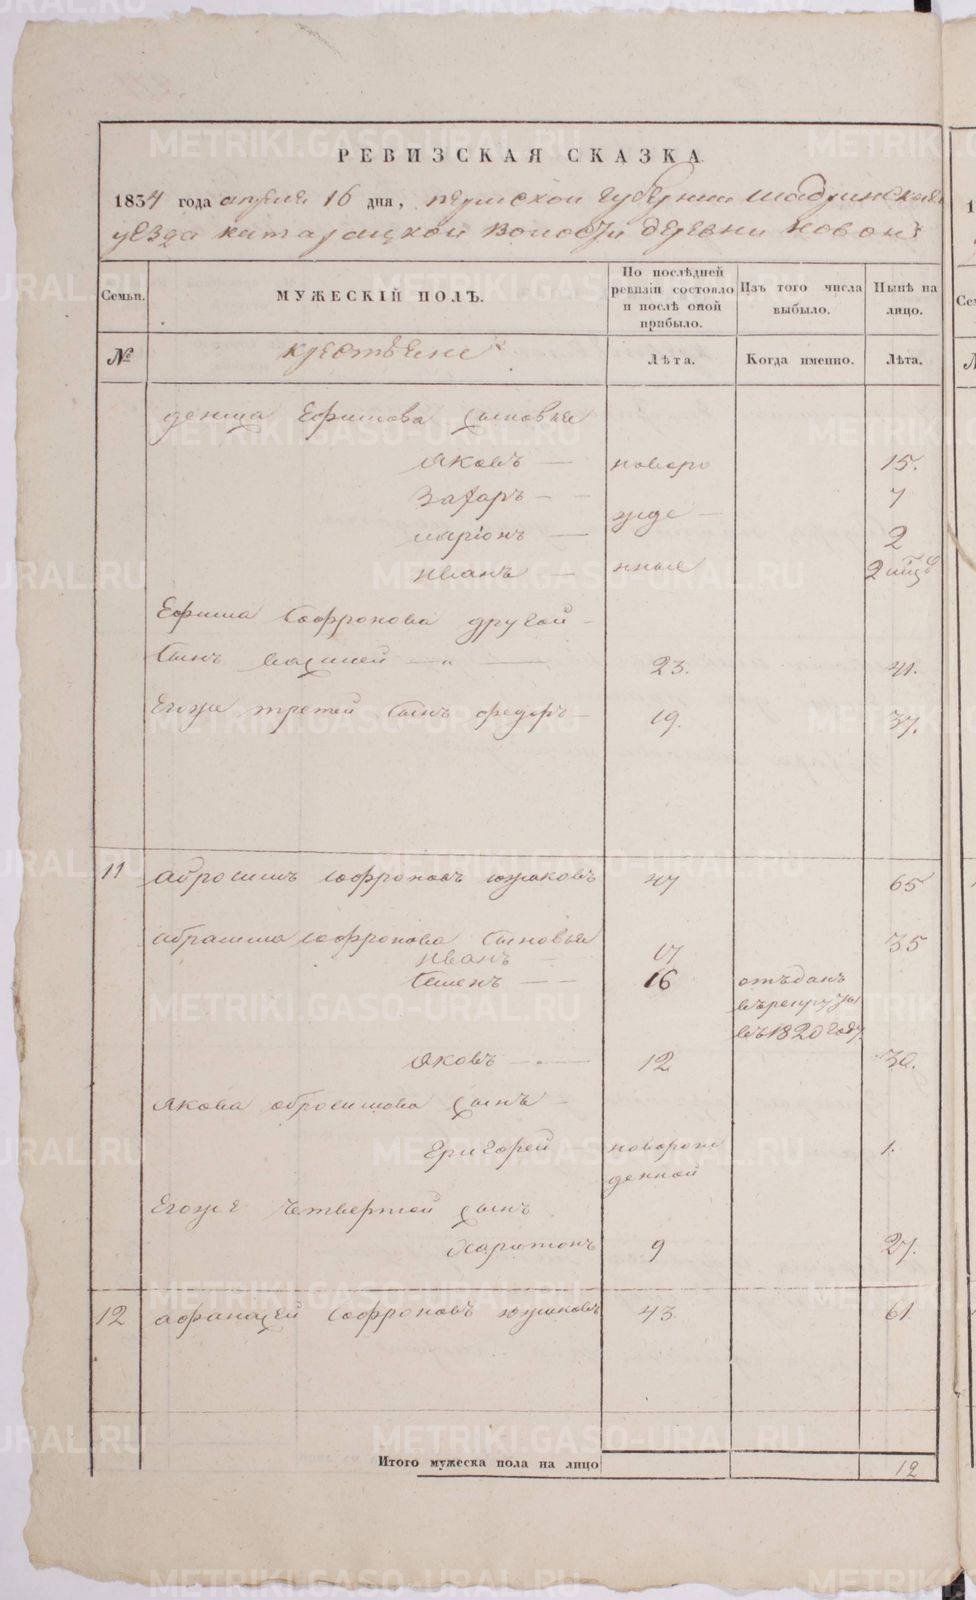 РЕВИЗСКАЯ СКАЗКА
1834 года апреля 16 дня, пермской губернии шадринскаго
уезда катарацкой волости деревни новой
Семьи. МУЖЕСКІЙ ПОЛЪ. По послѣдней ревизіи состояло и послѣ оной прибыло. Изъ того числа выбыло. Нынѣ на лицо.
№ крестьяне Лѣта. Когда именно. Лѣта.
Ефимова сыновья
яковъ — новоро 15.
Захаръ — 7
ларіонъ — жде 2
иванъ — нные 2
Ефима Софронова другой
Сынъ 23. 41.
Егоже третей Сынъ федоръ 19. 37.
11 абросимъ софроновъ южаковъ 47 65
абрасима софронова Сыновья
иванъ 17 35
Семенъ — 16 отъданъ
въ рекруты
въ 1820 году.
яковъ — 12 30.
якова абросимова сынъ
Григорей новорож 1.
денной
Егоже четвертей сынъ
Харитонъ 9 27.
12 афанасей софроновъ южаковъ 43 61
Итого мужеска пола на лицо 12
METRIKI.GASO-URAL.RU